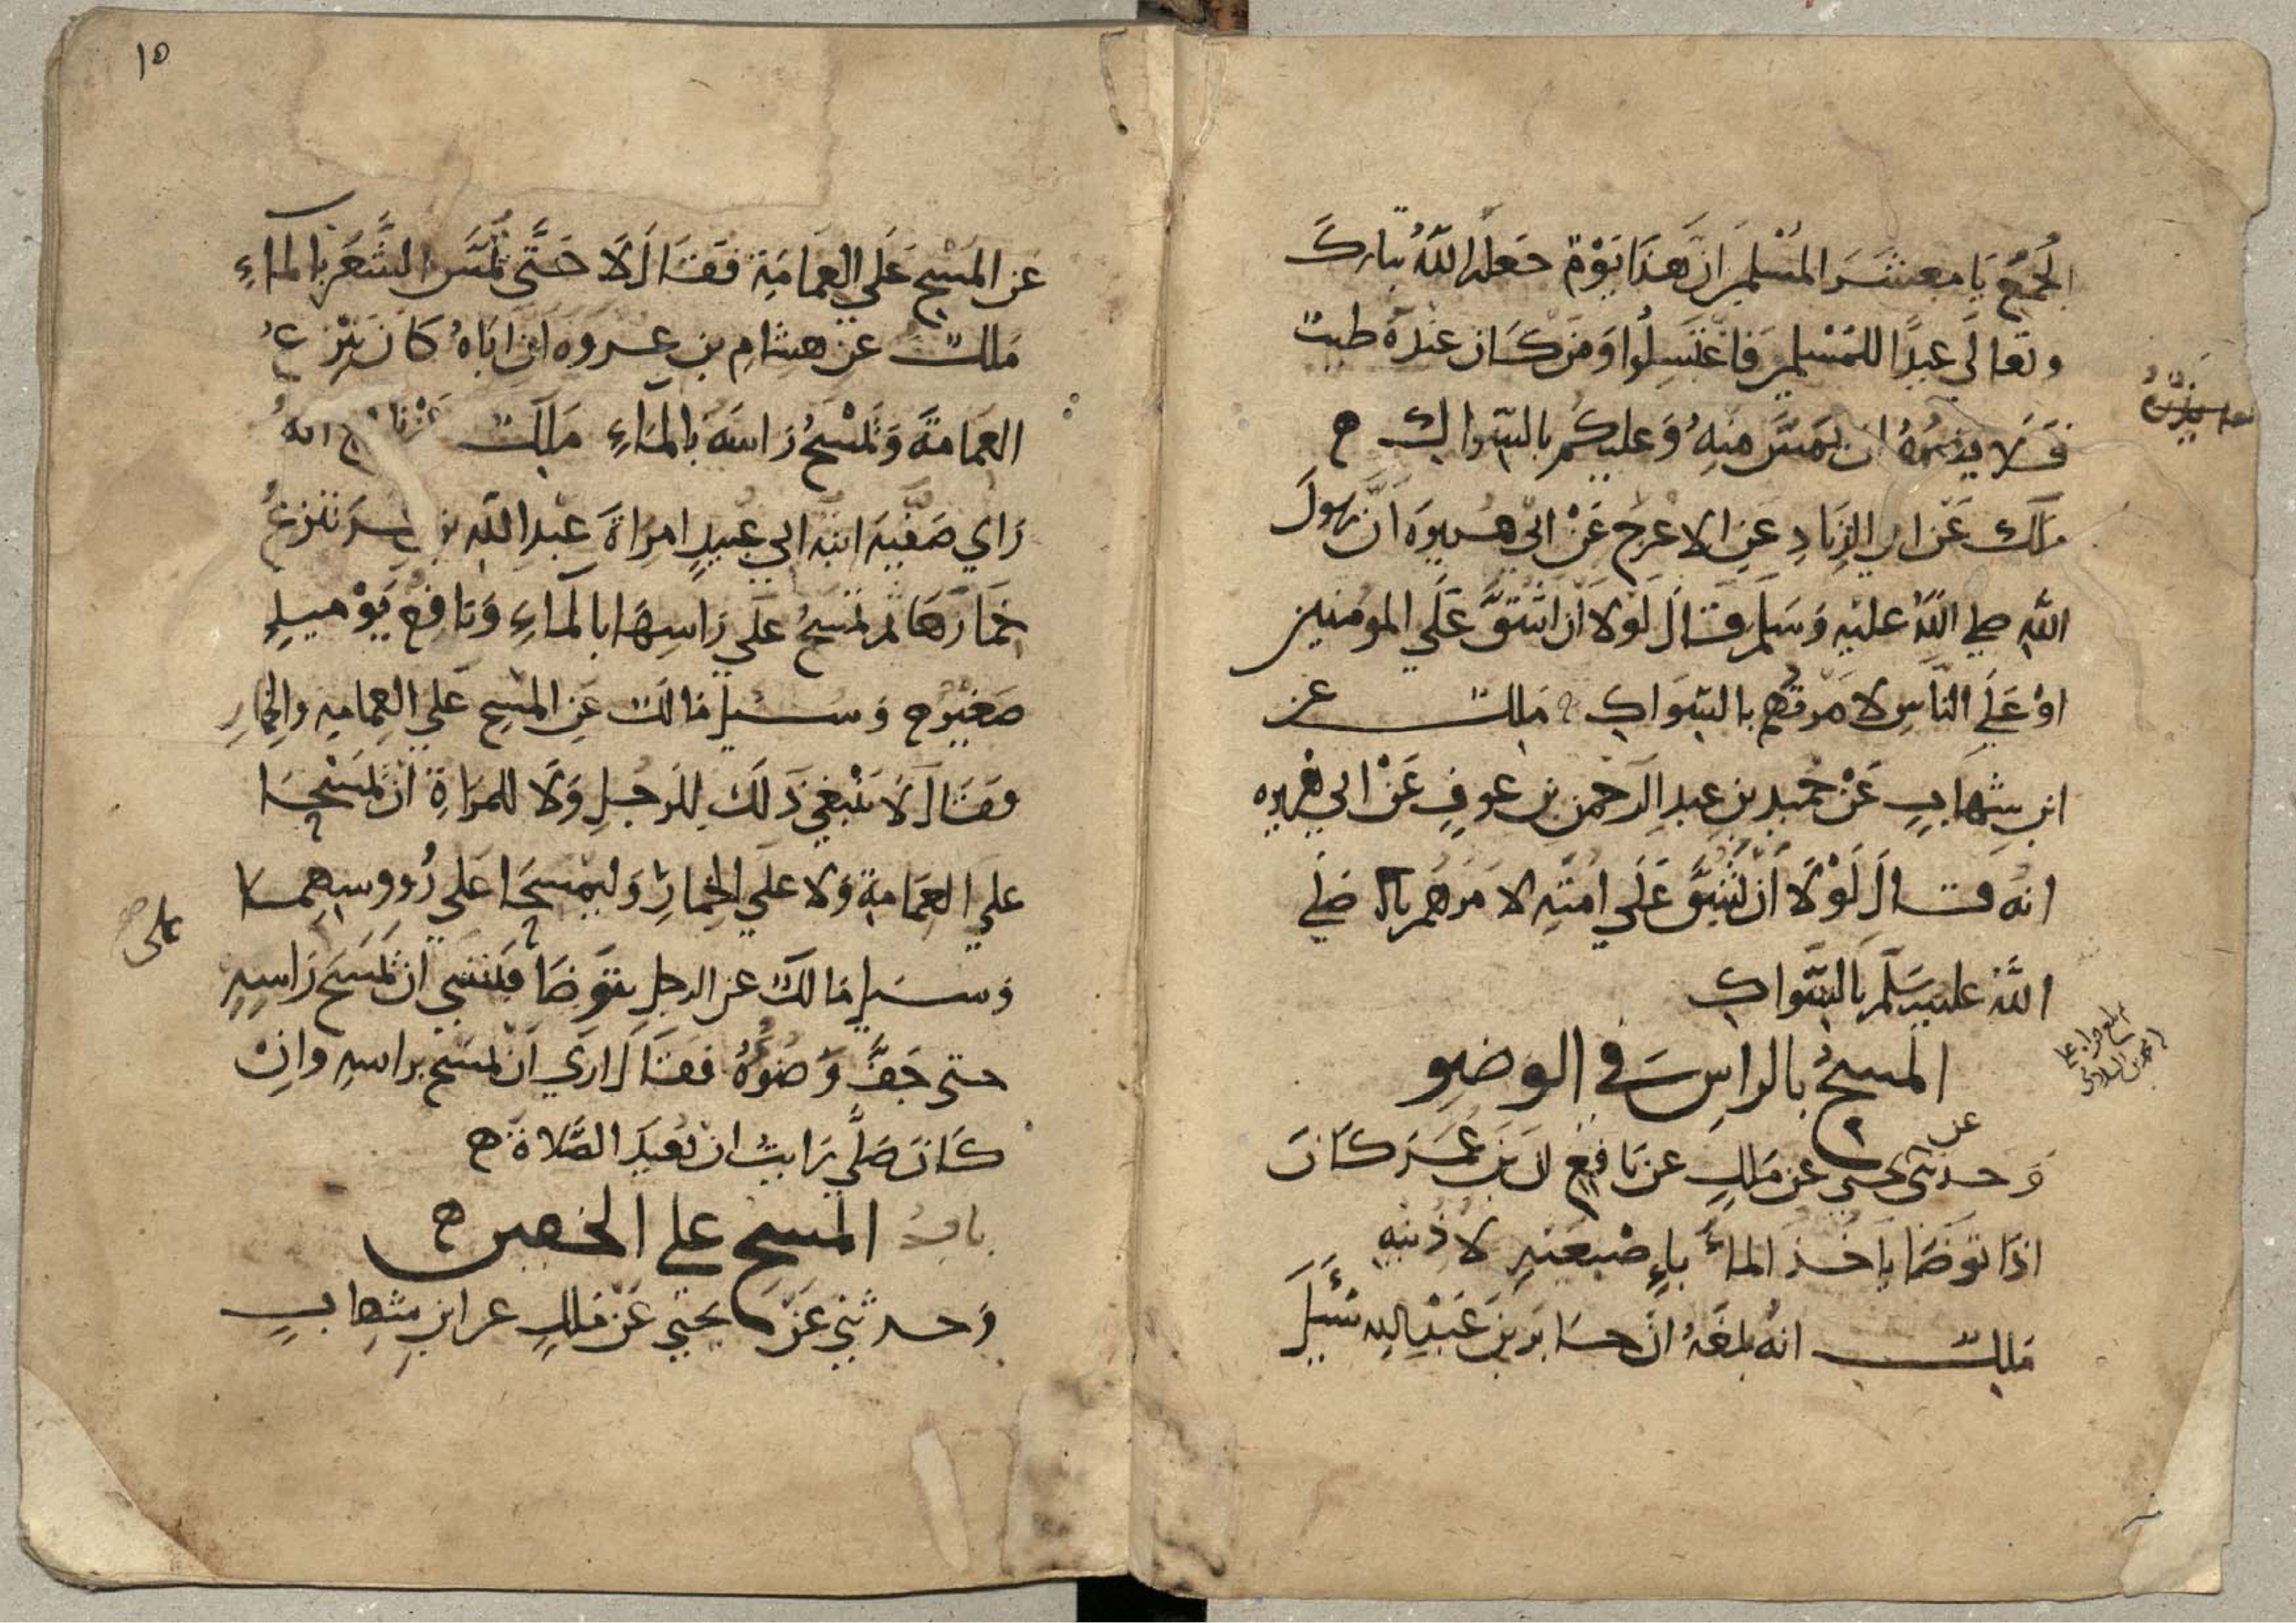 الجُمَعِ يَا معشَرَ المُسْلمِينَ انَّ هَذَا يَوْمٌ جَعَلَهُ اللَّهُ تبارَكَ
وتعالَي عِيدًا للمُسْلمين فَاغْتَسِلُوا وَمَن كَان عندَهُ طيبٌ
فَلا يضرُّهُ ان يَمَسَّ منهُ وَعليكُم بالسِّواكِ ه
مَلك عَن ابي الزِّنَادِ عَنِ الاعْرَجِ عَنْ ابي هُريرَه انَّ رسُولَ
اللهِ صلي اللَّهُ عليهِ وَسَلم قَالَ لَوْلا أن اشُقَّ عَلَي المومنين
اوْ عَلَي النَّاسِ لامرتُهم بالسِّوَاكِ ه مَلك عن
ابنِ شِهَابٍ عَنْ حُميدِ بنِ عبدِ الرَحمن بن عوفٍ عَنْ ابي هُريره
انهُ قَالَ لَوْلا أَنْ يَشُقَّ عَلَي امَّتِهِ لامَرَهُم صَلي
اللَّهُ عليه وسَلَّم بالسِّواكِ
المسحُ بالراسِ في الوضوِ
وَحدثني عن يحيي عن مَلكٍ عن نَافِعٍ ان بنَ عُمَرَ كَانَ
اذَا توَضَا ياخُذ الماءَ باِصْبعَيْهِ لاذنيهِ
مَلك انهُ بلغَهُ انَّ جَابرَ بنَ عَبْدِ اللهِ سُئِلَ
١٥
عَنِ المَسْحِ عَلَي العِمَامَةِ فَقَالَ لَا حَتَّى يُمَسَّ الشَّعَرُ بالماءِ
مَلك عَنْ هشَامِ بنِ عروه انَّ ابَاهُ كَانَ يَنْزعُ
العِمَامةَ وَيَمْسَحُ رَاسَهُ بالمَاءِ مَلك عَنْ نافع انهُ
رَاي صَفيَّه ابنه ابي عُبيدٍ امرَاةَ عبدِ اللهِ بن عمر تنزعُ
خمَارَهَا ثم تمسَحُ عَلَي رَاسِهَا بالمَاءِ وَنافعٌ يَوْميذٍ
صَغيرٌ ه وَسُيلَ مَالك عَنِ المسْحِ عَلي العِمامهِ والخِمارِ
فقَالَ لَا يَنْبغي ذَلكَ للرَجُلِ وَلَا للمرَاةِ انْ يَمْسَحَا
علي العِمَامةِ ولا عَلي الخِمارِ وَليمْسَحَا علي رُووسِهِمَا
وَسُيلَ مَالكٌ عن الرجلِ يتَوَضَا فنسي ان يمْسَحَ رَاسِهِ
حتى جَفَّ وَضُوُهُ فقَالَ ارَي انْ يمسَح براسهِ وانْ
كَانَ صَلَّي رَايتُ ان يُعيدَ الصَّلاةَ ه
بابُ المسح علي الخفين ه
وَحدثني عَنْ يحيَي عَنْ مَلكٍ عن ابنِ شِهَابٍ